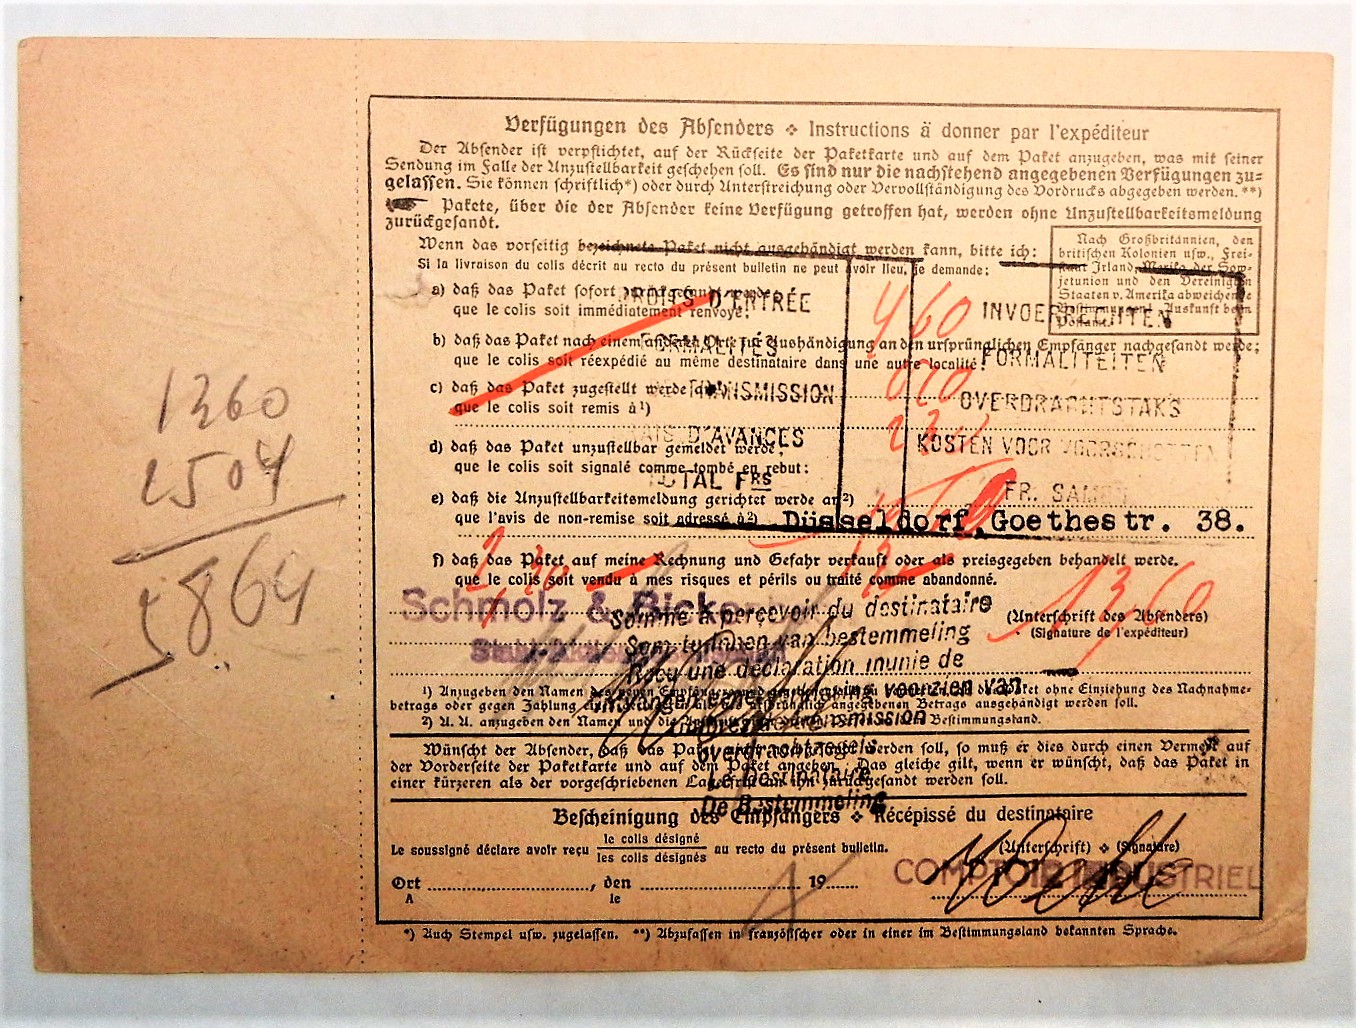 Verfügungen des Absenders ❖ Instructions à donner par l'expéditeur
Der Absender ist verpflichtet, auf der Rückseite der Paketkarte und auf dem Paket anzugeben, was mit seiner
Sendung im Falle der Unzustellbarkeit geschehen soll. Es sind nur die nachstehend angegebenen Verfügungen zu=
gelassen. Sie können schriftlich*) oder durch Unterstreichung oder Vervollständigung des Vordrucks abgegeben werden.**)
Pakete, über die der Absender keine Verfügung getroffen hat, werden ohne Unzustellbarkeitsmeldung
zurückgesandt.
Wenn das vorseitig bezeichnete Paket nicht ausgehändigt werden kann, bitte ich:
Si la livraison du colis décrit au recto du présent bulletin ne peut avoir lieu, je demande:
Nach Großbritannien, den
britischen Kolonien usw., Frei-
staat Irland, Marokko, der Sow-
jetunion und den Vereinigten
Staaten v. Amerika abweichende
Bestimmungen. Auskunft beim
Postamt.
a) daß das Paket sofort zurückgesandt werde;
que le colis soit immédiatement renvoyé;
DROITS D'ENTRÉE
460
INVOERRECHTEN
b) daß das Paket nach einem anderen Orte zur Aushändigung an den ursprünglichen Empfänger nachgesandt werde;
que le colis soit réexpédié au même destinataire dans une autre localité:
FORMALITÉS
FORMALITEITEN
c) daß das Paket zugestellt werde an
que le colis soit remis à ¹)
TRANSMISSION
OVERDRACHTSTAKS
FRAIS D'AVANCES
KOSTEN VOOR VOORSCHOTTEN
d) daß das Paket unzustellbar gemeldet werde;
que le colis soit signalé comme tombé en rebut:
TOTAL FRS
FR. SAMEN
e) daß die Unzustellbarkeitsmeldung gerichtet werde an ²)
que l'avis de non-remise soit adressé à ²) Düsseldorf, Goethestr. 38.
f) daß das Paket auf meine Rechnung und Gefahr verkauft oder als preisgegeben behandelt werde.
que le colis soit vendu à mes risques et périls ou traité comme abandonné.
1360
2504
5864
Schmolz & Bicke
Somme à percevoir du destinataire
Som te innen van bestemmeling
Reçu une déclaration munie de
(Unterschrift des Absenders)
(Signature de l'expéditeur)
13,60
transmission
overdrachtzegels
Le Destinataire
De Bestemmeling
¹) Anzugeben den Namen des neuen Empfängers und
²) U. U. anzugeben den Namen und die
Bestimmungsland.
Wünscht der Absender, daß das Paket
werden soll, so muß er dies durch einen Vermerk auf
der Vorderseite der Paketkarte und auf dem Paket angeben. Das gleiche gilt, wenn er wünscht, daß das Paket in
einer kürzeren als der vorgeschriebenen Lagerfrist an ihn zurückgesandt werden soll.
Bescheinigung des Empfängers ❖ Récépissé du destinataire
Le soussigné déclare avoir reçu le colis désigné
les colis désignés au recto du présent bulletin.
(Unterschrift) ❖ (Signature)
COMPTOIR INDUSTRIEL
Ort , den 19
A le
*) Auch Stempel usw. zugelassen. **) Abzufassen in französischer oder in einer im Bestimmungsland bekannten Sprache.